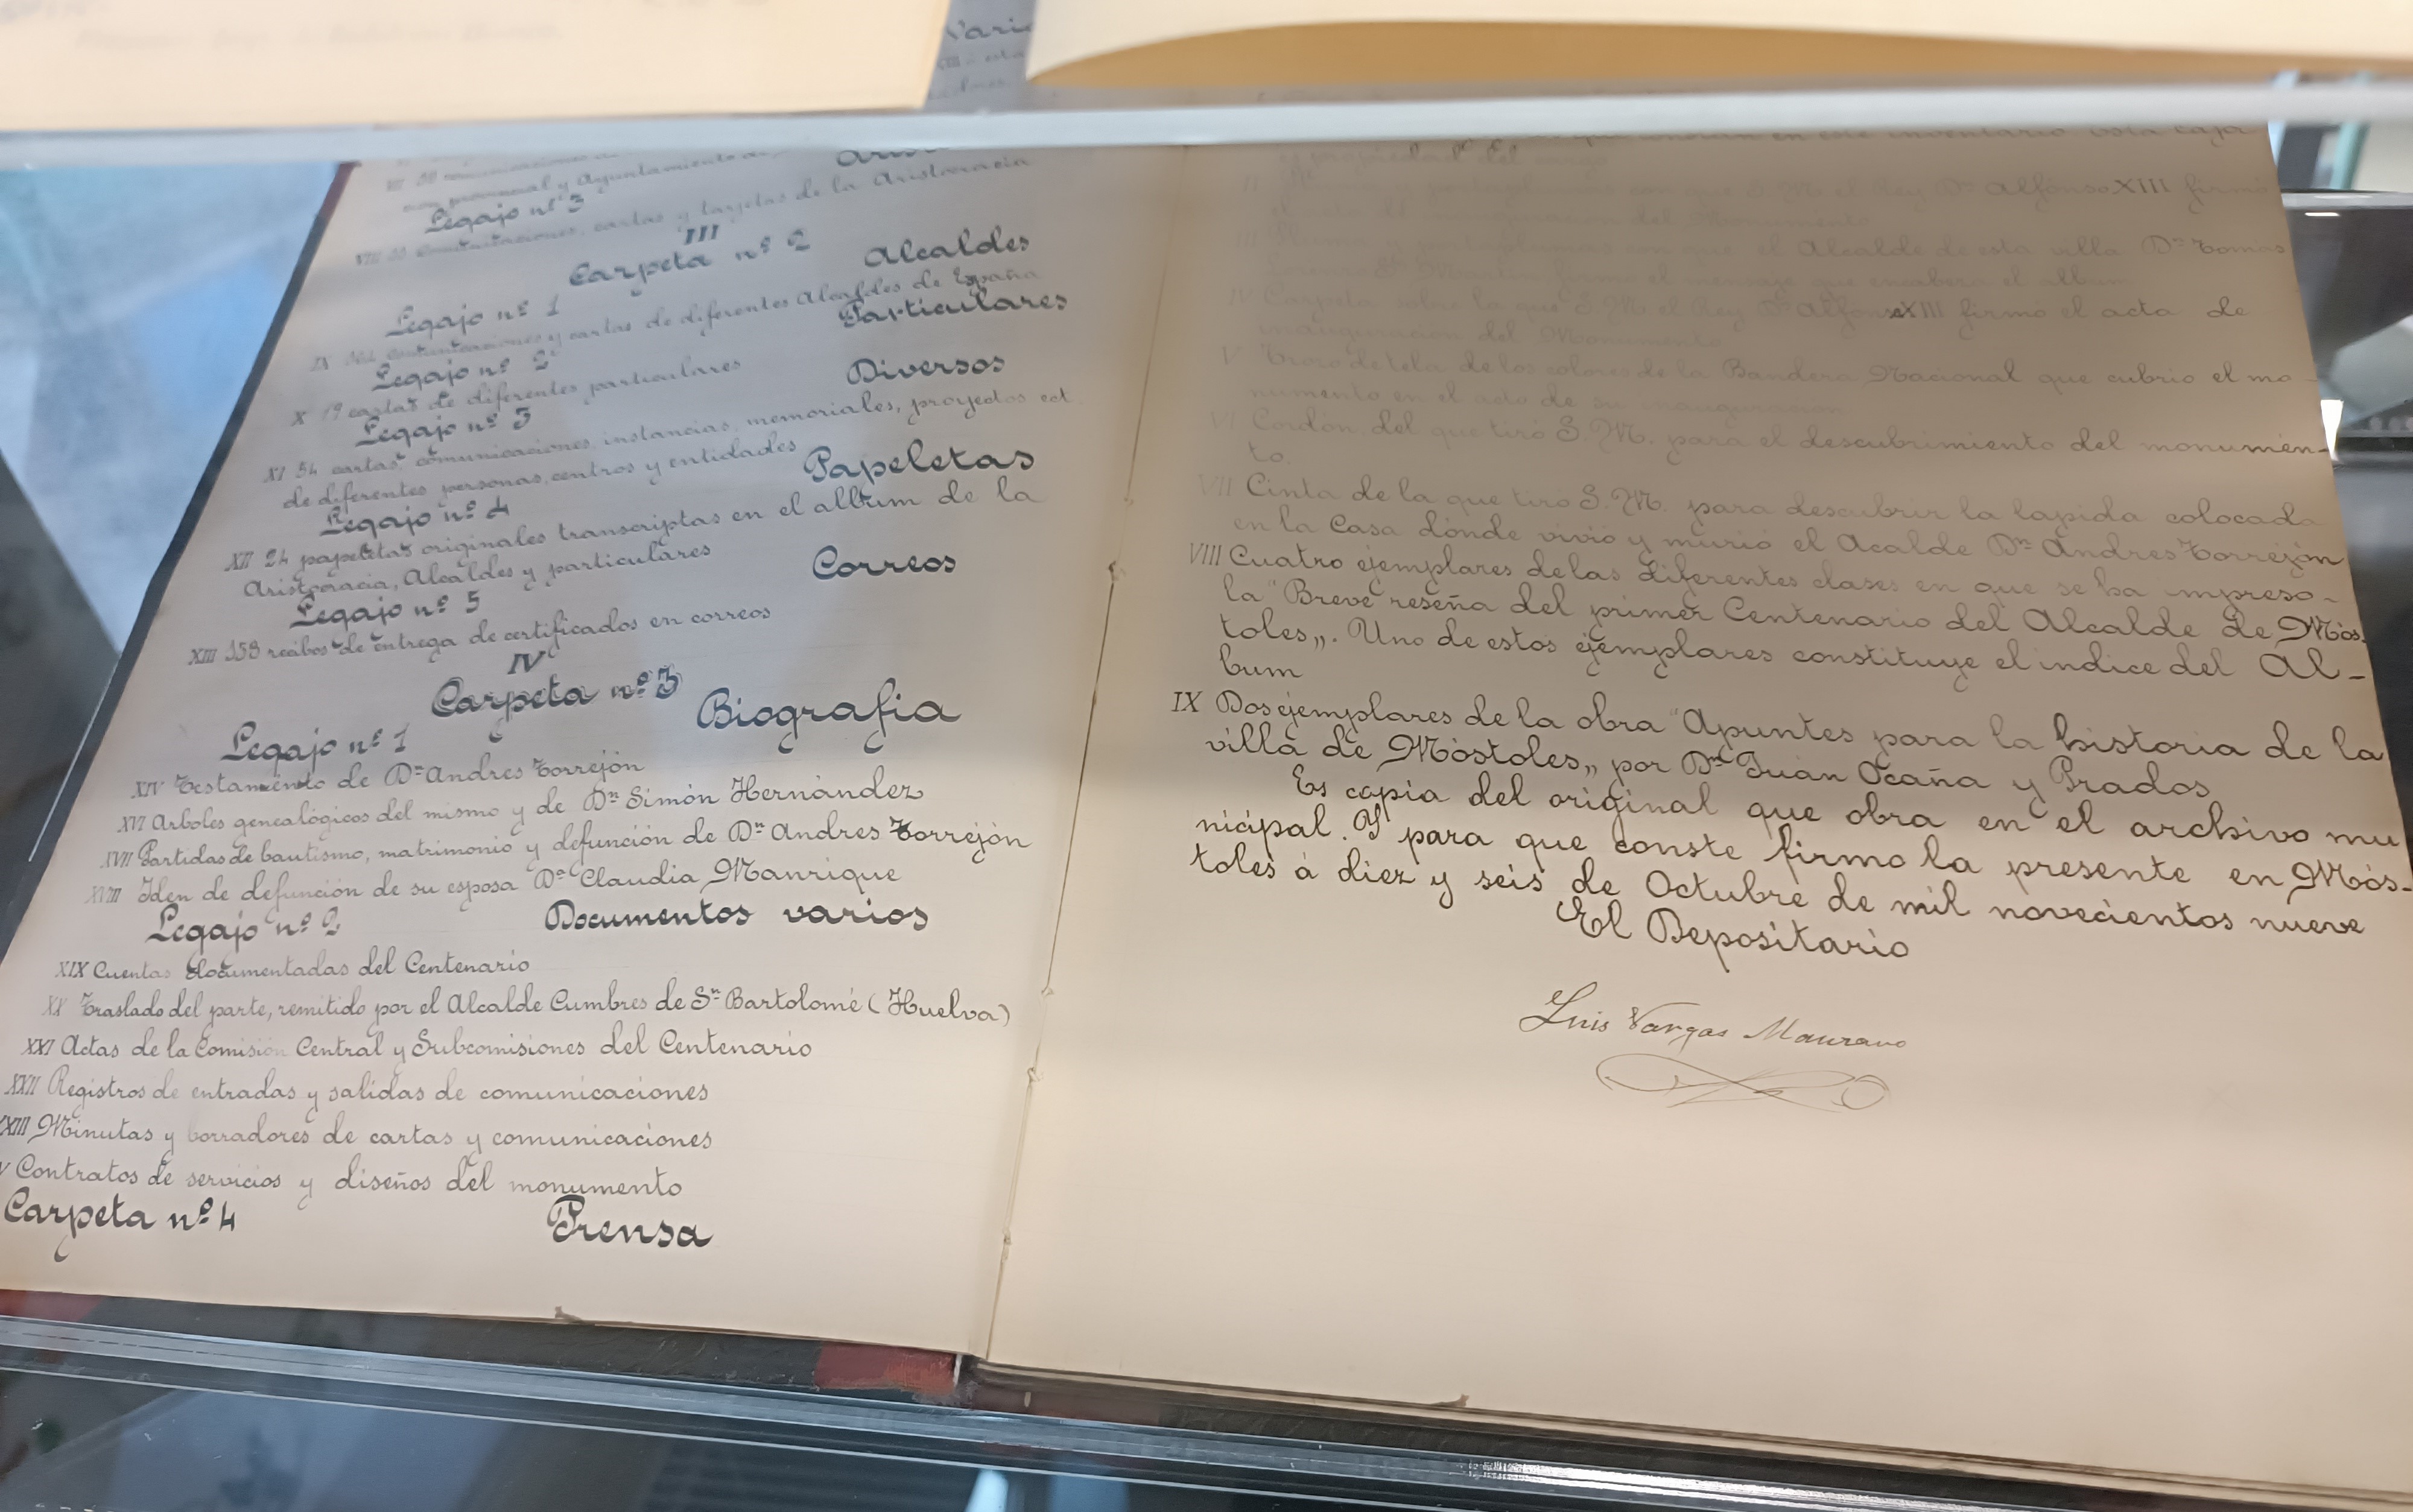 Legajo nº 3
cartas y tarjetas de la Aristocracia
III
Carpeta nº 2
Legajo nº 1 Alcaldes
IX comunicaciones y cartas de diferentes Alcaldes de España
Legajo nº 2 Particulares
X 19 cartas de diferentes particulares
Legajo nº 3 Diversos
XI 54 cartas, comunicaciones, instancias, memoriales, proyectos ect.
de diferentes personas, centros y entidades
Legajo nº 4 Papeletas
XII 24 papeletas originales transcriptas en el album de la
Aristocracia, Alcaldes y particulares
Legajo nº 5 Correos
XIII 159 recibos de entrega de certificados en correos
IV
Carpeta nº 3
Legajo nº 1 Biografia
XIV Testamento de Dn Andres Torrejón
XVI Arboles genealógicos del mismo y de Dn Simón Hernández
XVII Partidas de bautismo, matrimonio y defunción de Dn Andres Torrejón
XVIII Iden de defunción de su esposa Dª Claudia Manrique
Legajo nº 2 Documentos varios
XIX Cuentas documentadas del Centenario
XX Traslado del parte, remitido por el Alcalde Cumbres de Sn Bartolomé (Huelva)
XXI Actas de la Comisión Central y Subcomisiones del Centenario
XXII Registros de entradas y salidas de comunicaciones
XXIII Minutas y borradores de cartas y comunicaciones
Contratos de servicios y diseños del monumento
Carpeta nº 4 Prensa
en este inventario
II que S. M. el Rey Dn Alfonso XIII firmó
del Monumento
III que el Alcalde de esta villa Dn Tomas
el mensaje que encabeza el album
IV Carpeta sobre la que S. M. el Rey Dn Alfonso XIII firmó el acta de
inauguración del Monumento
V Trozo de tela de los colores de la Bandera Nacional que cubrió el mo-
numento en el acto de su inauguración
VI Cordón del que tiró S. M. para el descubrimiento del monumen-
to.
VII Cinta de la que tiró S. M. para descubrir la lapida colocada
en la Casa dónde vivió y murió el Acalde Dn Andres Torrejón
VIII Cuatro ejemplares de las diferentes clases en que se ha impreso-
la "Breve reseña del primer Centenario del Alcalde de Mós-
toles„. Uno de estos ejemplares constituye el indice del Al-
bum
IX Dos ejemplares de la obra "Apuntes para la historia de la
villa de Móstoles„ por Dn Juan Ocaña y Prados
Es copia del original que obra en el archivo mu
nicipal. Y para que conste firmo la presente en Mós-
toles á diez y seis de Octubre de mil novecientos nueve
El Depositario
Luis Vargas